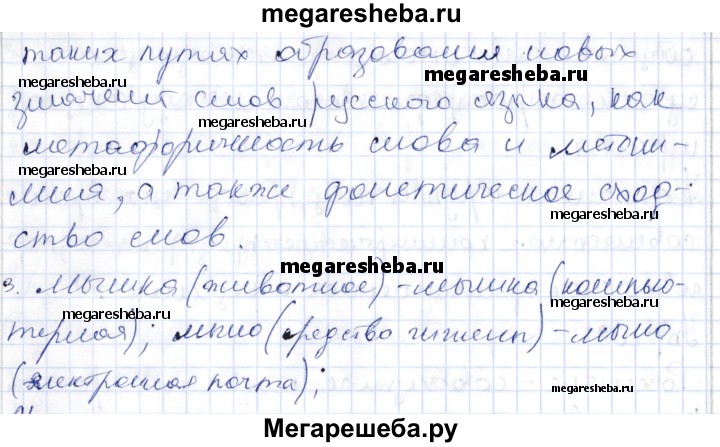 megaresheba.ru
таких путях образования новых
megaresheba.ru megaresheba.ru
значений слов русского языка, как
megaresheba.ru
метафоричность слова и метони-
megaresheba.ru
мия, а также фонетическое сход-
megaresheba.ru
ство слов.
megaresheba.ru
3. Мышка (животное) - мышка (компью-
megaresheba.ru megaresheba.ru
терная); мыло (средство гигиены) - мыло
megaresheba.ru
(электронная почта);
Мегарешеба.ру